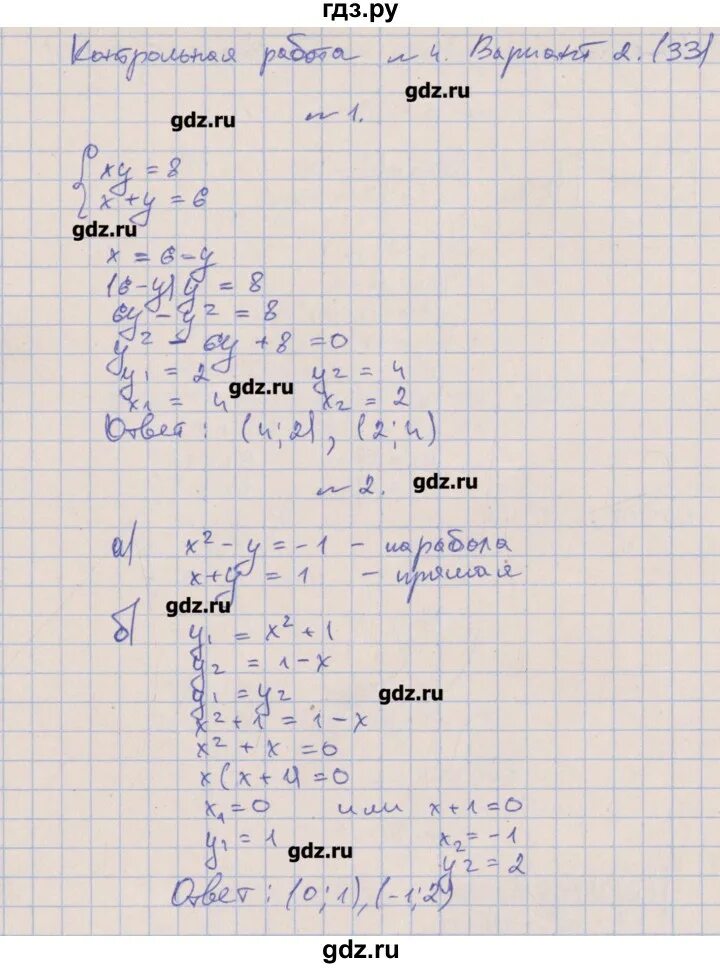 гдз.ру
Контрольная работа №4. Вариант 2. (33)
gdz.ru
gdz.ru
№ 1.
{ xy = 8
x + y = 6
gdz.ru
x = 6 - y
(6 - y) y = 8
6y - y² = 8
y² - 6y + 8 = 0
y₁ = 2 y₂ = 4
gdz.ru
x₁ = 4 x₂ = 2
Ответ: (4; 2), (2; 4)
№ 2. gdz.ru
а) x² - y = -1 - парабола
x + y = 1 - прямая
gdz.ru
б) y₁ = x² + 1
y₂ = 1 - x
y₁ = y₂ gdz.ru
x² + 1 = 1 - x
x² + x = 0
x(x + 1) = 0
x₁ = 0 или x + 1 = 0
y₁ = 1 x₂ = -1
gdz.ru
y₂ = 2
Ответ: (0; 1), (-1; 2)
gdz.ru